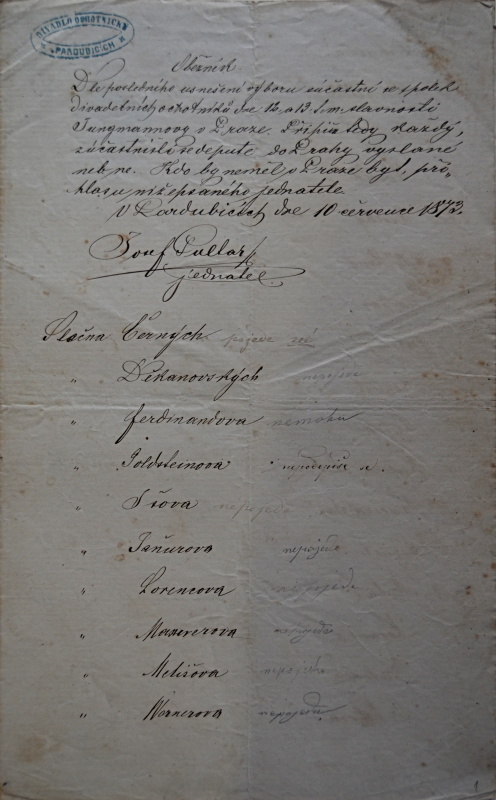 DIVADLO OCHOTNICKÉ
v PARDUBICÍCH
Oběžník
Dle posledního usnešení výboru súčastní se spolek
divadelních ochotníků dne 12. a 13. t. m. slavnosti
Jungmannovy v Praze. Připiš tedy každý,
súčastní-li se depute do Prahy vyslané
neb ne. Kdo by neměl v Praze byt, při-
hlas u níže psaného jednatele.
V Pardubicích dne 10 července 1873.
Josef
jednatel.
Slečna Černých. pojede
" Děkanovských nepojede
" Ferdinandova nemůže
" Goldsteinova nepodepíše se.
" nepojede
" nepojede
" Lorencova nepojede
" nepojede
" Melišova nepojede
" Wernerova nepojede
1